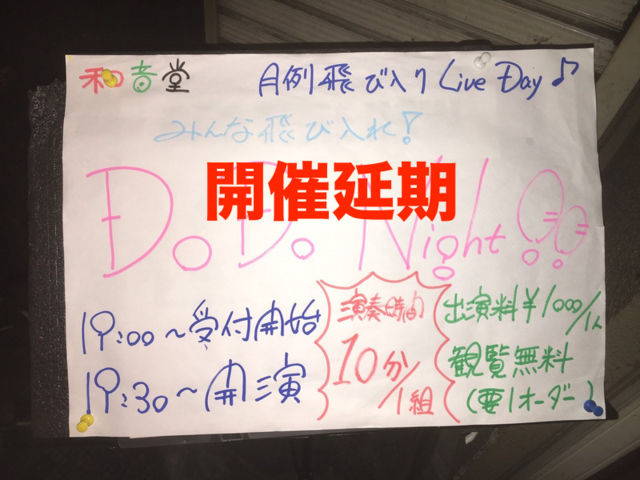 和音堂
月例飛び入りLive Day♪
みんな飛び入れ!
Do Do Night!!
開催延期
19:00～受付開始
19:30～開演
演奏時間
10分/1組
出演料¥1000/1人
観覧無料
(要1オーダー)